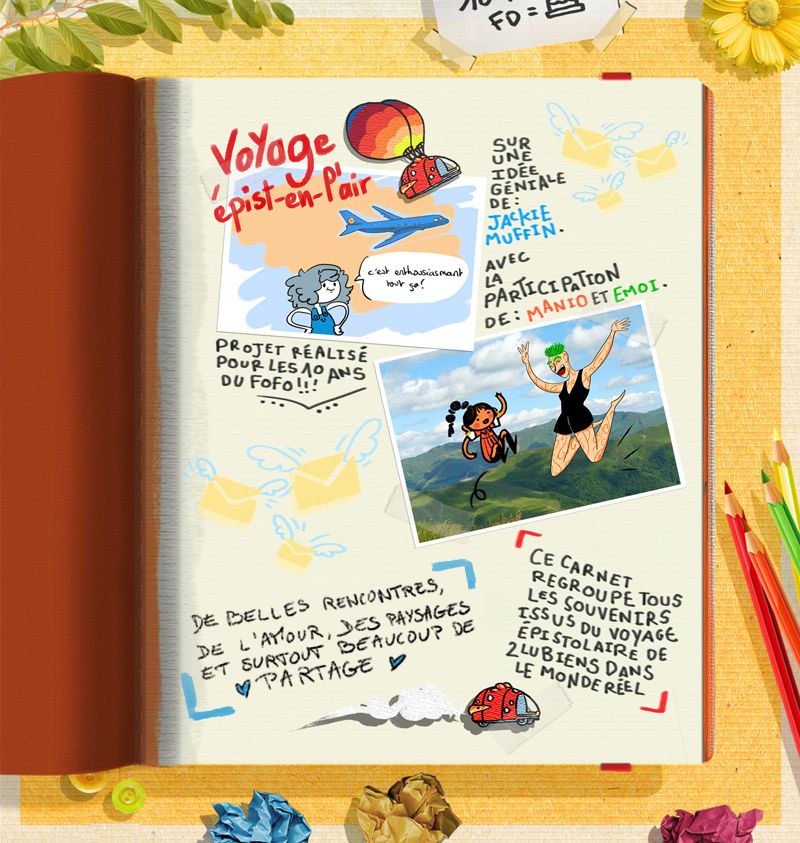 FD =
Voyage
épist-en-l'air
c'est enthousiasmant
tout ça!
PROJET RÉALISÉ
POUR LES 10 ANS
DU FOFO!!!
SUR
UNE
IDÉE
GÉNIALE
DE:
JACKIE
MUFFIN.
AVEC
LA
PARTICIPATION
DE: MANIO ET EMOI.
DE BELLES RENCONTRES,
DE L'AMOUR, DES PAYSAGES
ET SURTOUT BEAUCOUP DE
PARTAGE
CE CARNET
REGROUPE TOUS
LES SOUVENIRS
ISSUS DU VOYAGE
ÉPISTOLAIRE DE
2 LUBIENS DANS
LE MONDE RÉEL